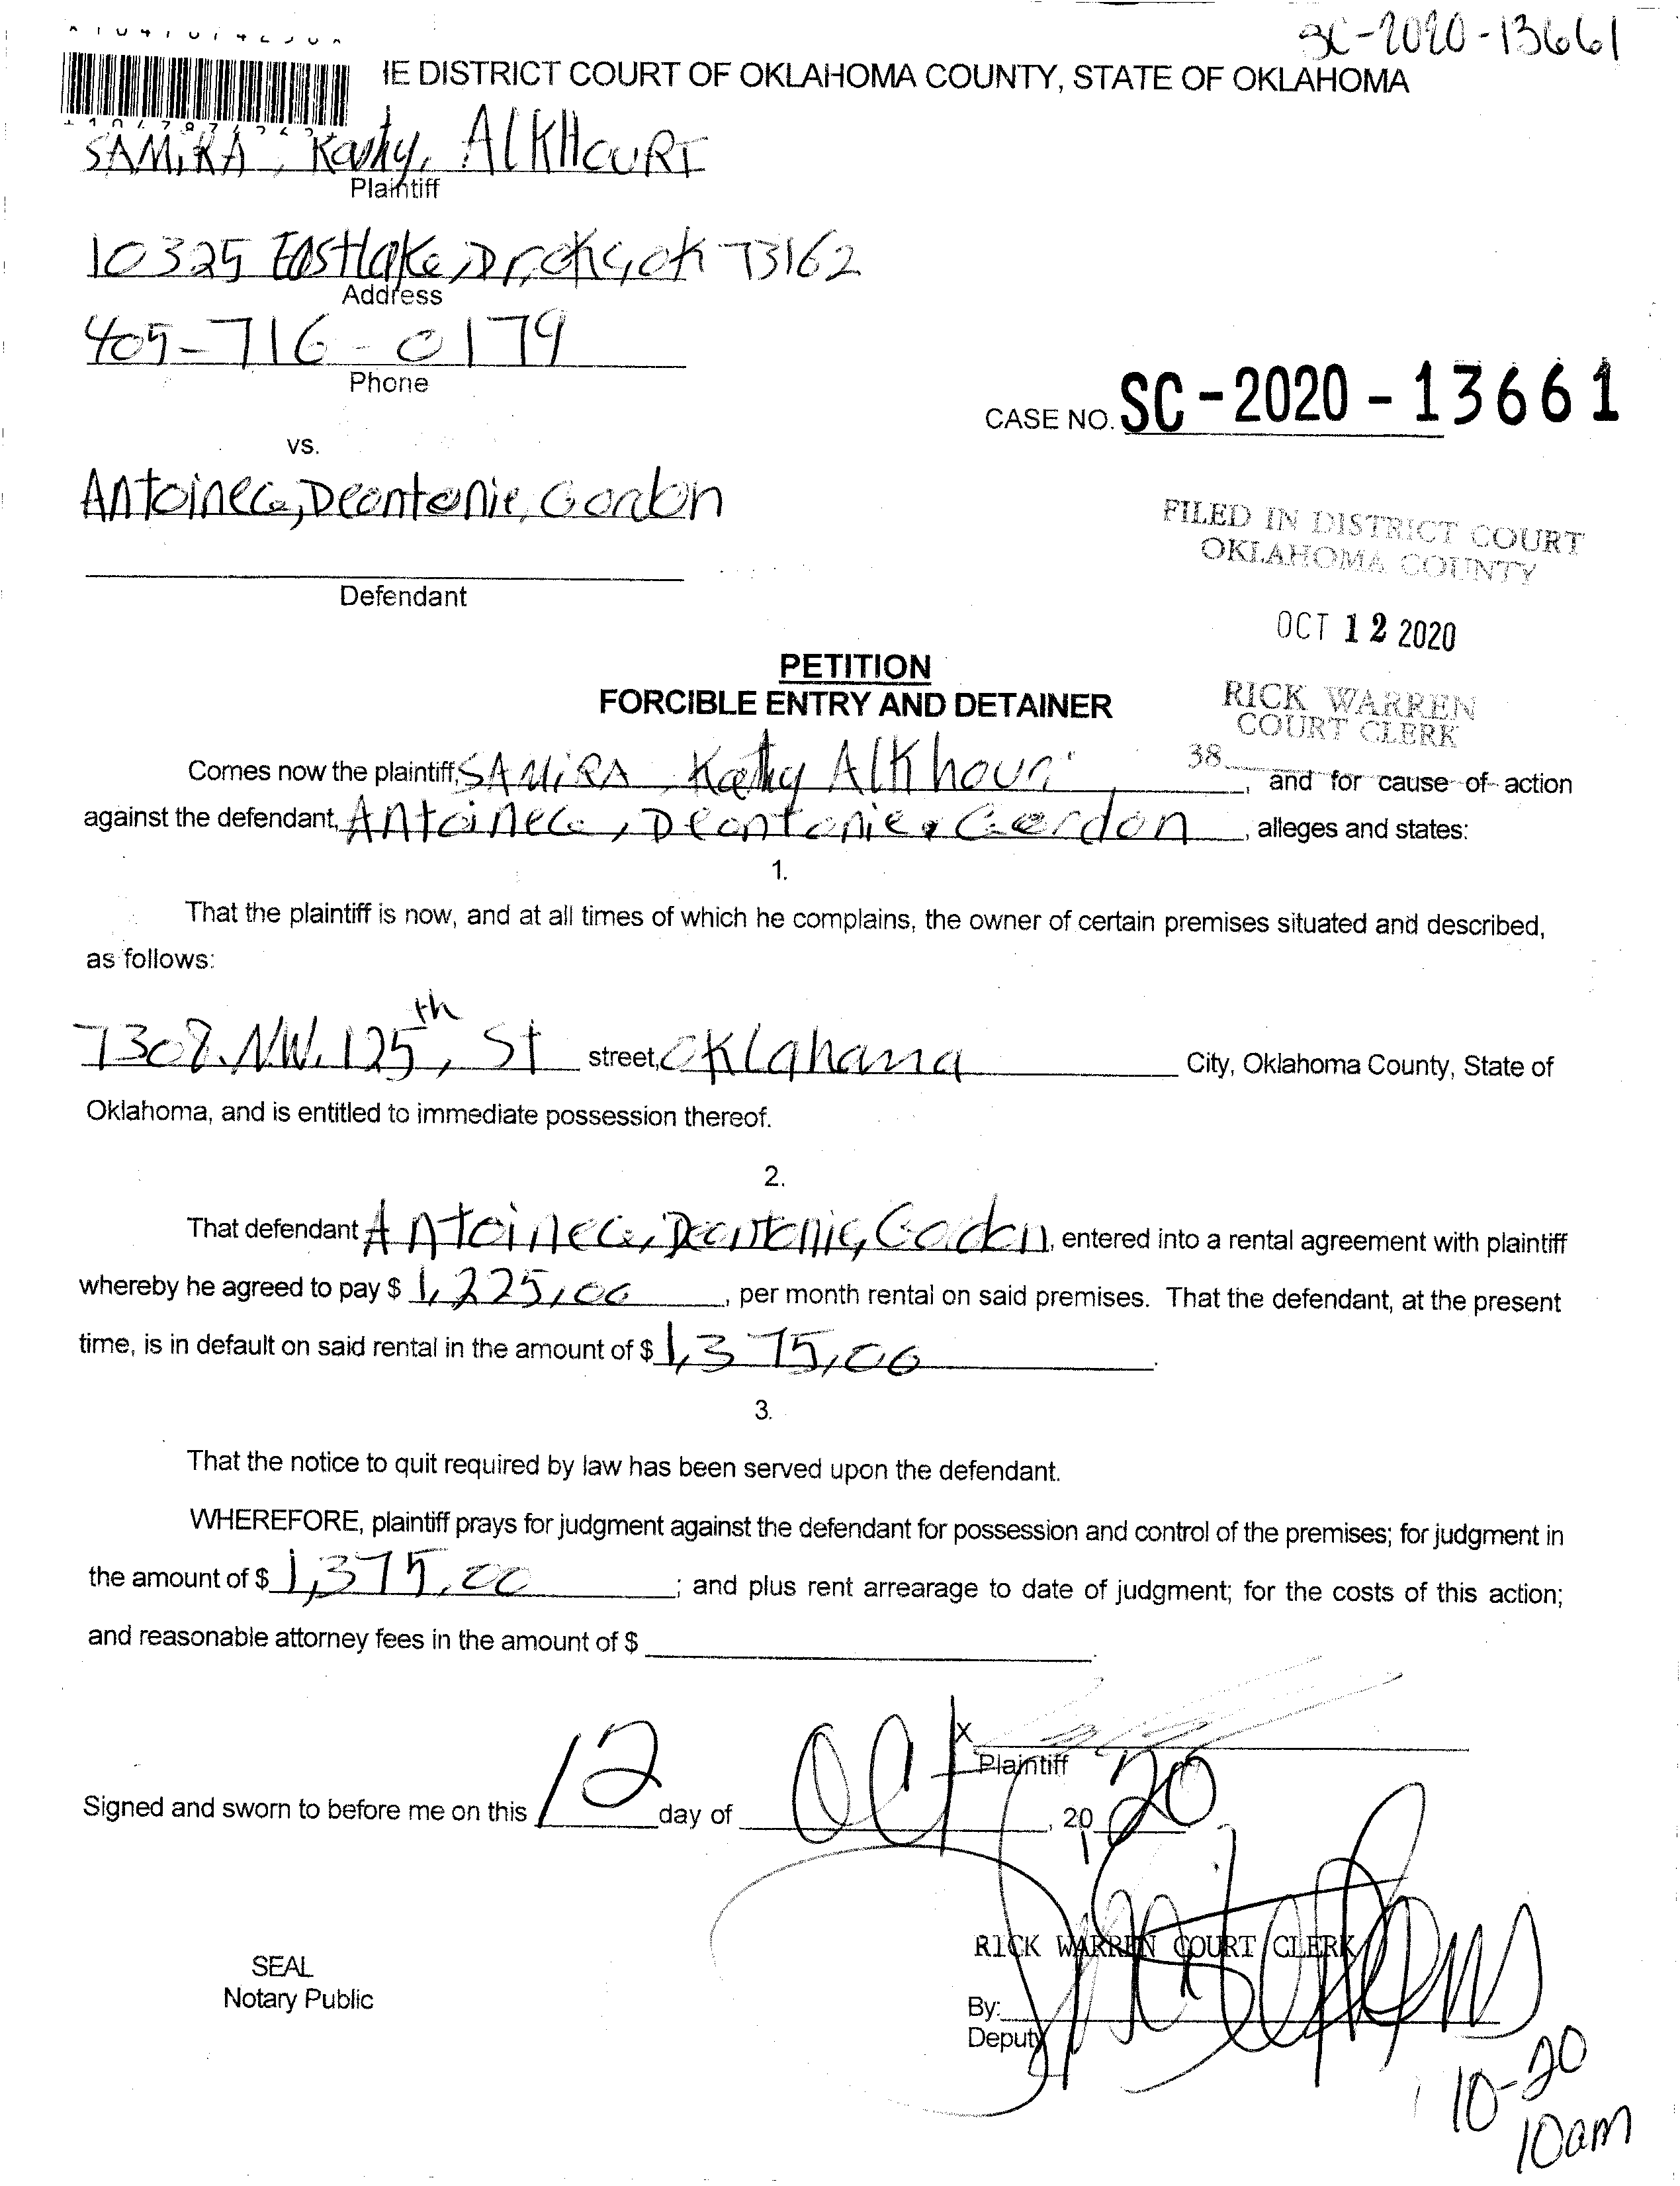 SC-2020-13661
IE DISTRICT COURT OF OKLAHOMA COUNTY, STATE OF OKLAHOMA
SAMiRA, Kathy, AlKHOURI
Plaintiff
10325 Eastlake, Dr, okc, ok 73162
Address
405-716-0179
Phone
CASE NO. SC-2020-13661
vs.
Antoinece, Deontonie, Gordon
Defendant
FILED IN DISTRICT COURT
OKLAHOMA COUNTY
OCT 12 2020
RICK WARREN
COURT CLERK
38
PETITION
FORCIBLE ENTRY AND DETAINER
Comes now the plaintiff, SAMiRA, Kathy Alkhouri, and for cause of action
against the defendant, Antoinece, Deontonie, Gordon, alleges and states:
1.
That the plaintiff is now, and at all times of which he complains, the owner of certain premises situated and described,
as follows:
7308. N.W. 125th, St street, Oklahama City, Oklahoma County, State of
Oklahoma, and is entitled to immediate possession thereof.
2.
That defendant Antoinece, Deontonie, Godon, entered into a rental agreement with plaintiff
whereby he agreed to pay $ 1,225,00, per month rental on said premises. That the defendant, at the present
time, is in default on said rental in the amount of $ 1,375,00.
3.
That the notice to quit required by law has been served upon the defendant.
WHEREFORE, plaintiff prays for judgment against the defendant for possession and control of the premises; for judgment in
the amount of $ 1,375.00; and plus rent arrearage to date of judgment; for the costs of this action;
and reasonable attorney fees in the amount of $
X
Plaintiff
Signed and sworn to before me on this 12 day of Oct, 20 20
SEAL
Notary Public
RICK WARREN COURT CLERK
By:
Deputy
10-20
10am